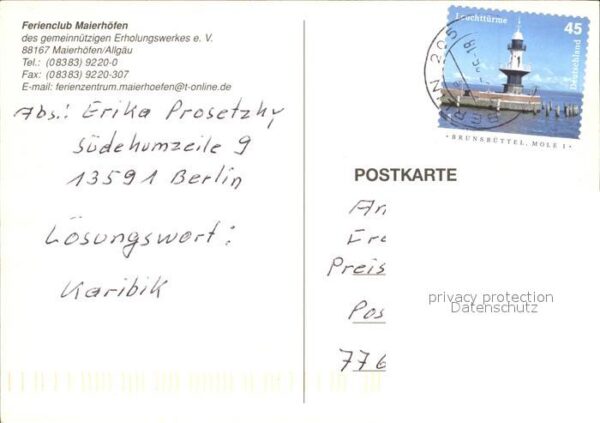 Ferienclub Maierhöfen
des gemeinnützigen Erholungswerkes e. V.
88167 Maierhöfen/Allgäu
Tel.: (08383) 9220-0
Fax: (08383) 9220-307
E-mail: ferienzentrum.maierhoefen@t-online.de
Abs.: Erika Prosetzky
Südehumzeile 9
13591 Berlin
Lösungswort:
Karibik
Leuchttürme
45
Deutschland
BRUNSBÜTTEL, MOLE 1
BERLIN
POSTKARTE
An
Fra
Preis
Pos
776
privacy protection
Datenschutz